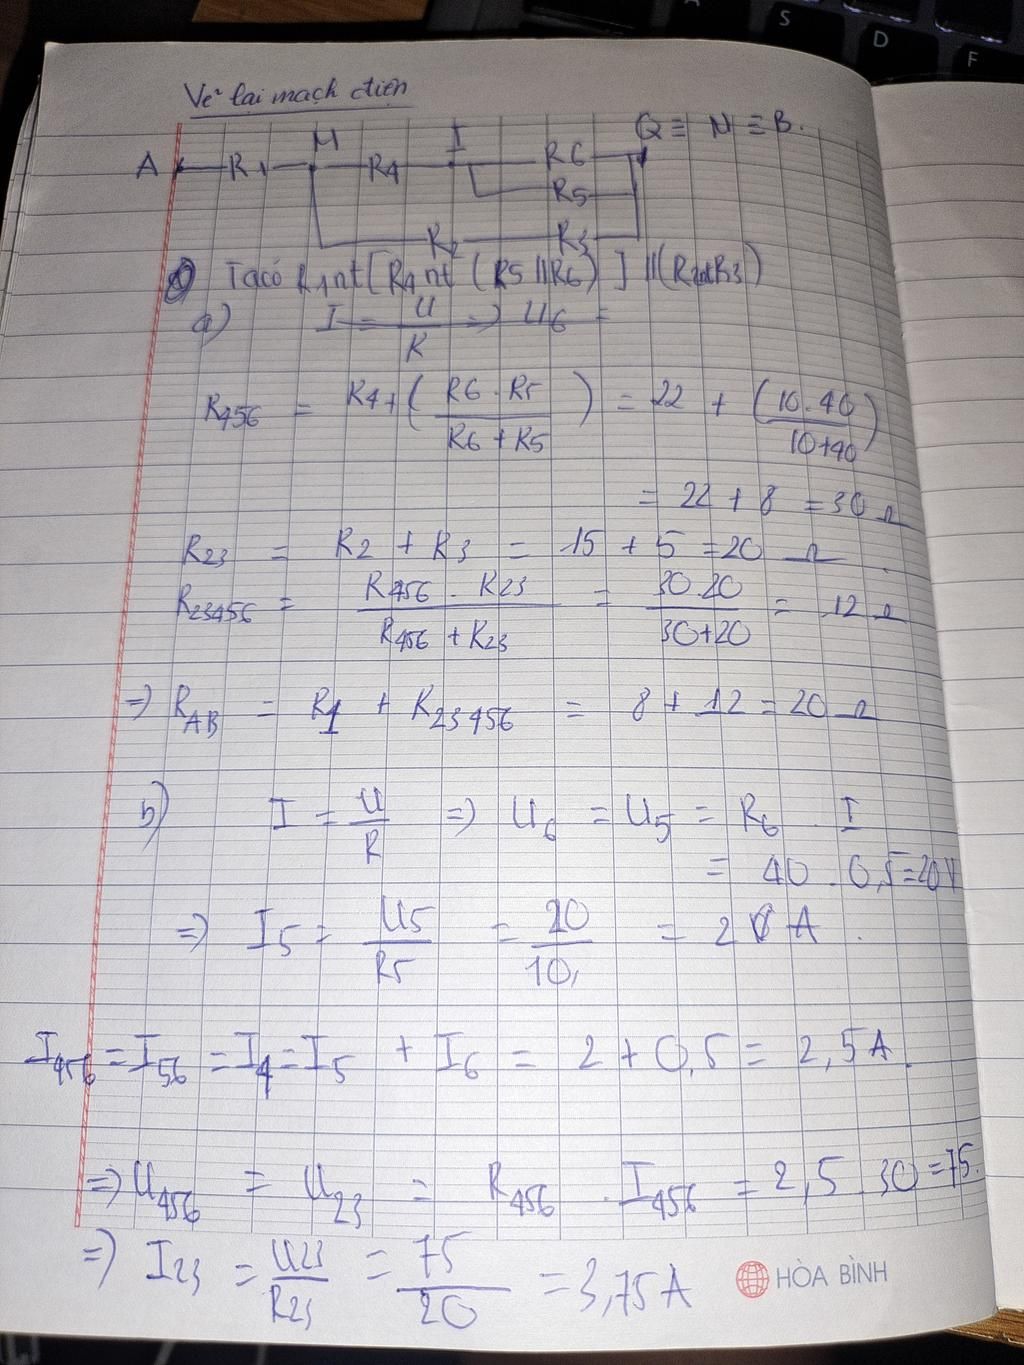 Vẽ lại mạch điện
A R1 M R4 I R6 Q ≡ N ≡ B.
R5
R2 R3
Ta có R1 nt [R4 nt (R5 // R6)] // (R2 nt R3)
a) I = U/R => U6 =
R456 = R4 + (R6 . R5 / R6 + R5) = 22 + (10.40 / 10+40)
= 22 + 8 = 30 Ω
R23 = R2 + R3 = 15 + 5 = 20 Ω
R23456 = R456 . R23 / R456 + R23 = 30.20 / 30+20 = 12 Ω
=> RAB = R1 + R23456 = 8 + 12 = 20 Ω
b) I = U/R => U6 = U5 = R6 . I
= 40 . 0,5 = 20V
=> I5 = U5/R5 = 20/10 = 2 A.
I456 = I56 = I4 = I5 + I6 = 2 + 0,5 = 2,5 A
=> U456 = U23 = R456 . I456 = 2,5 . 30 = 75.
=> I23 = U23/R23 = 75/20 = 3,75 A
HÒA BÌNH
S
D
F
A